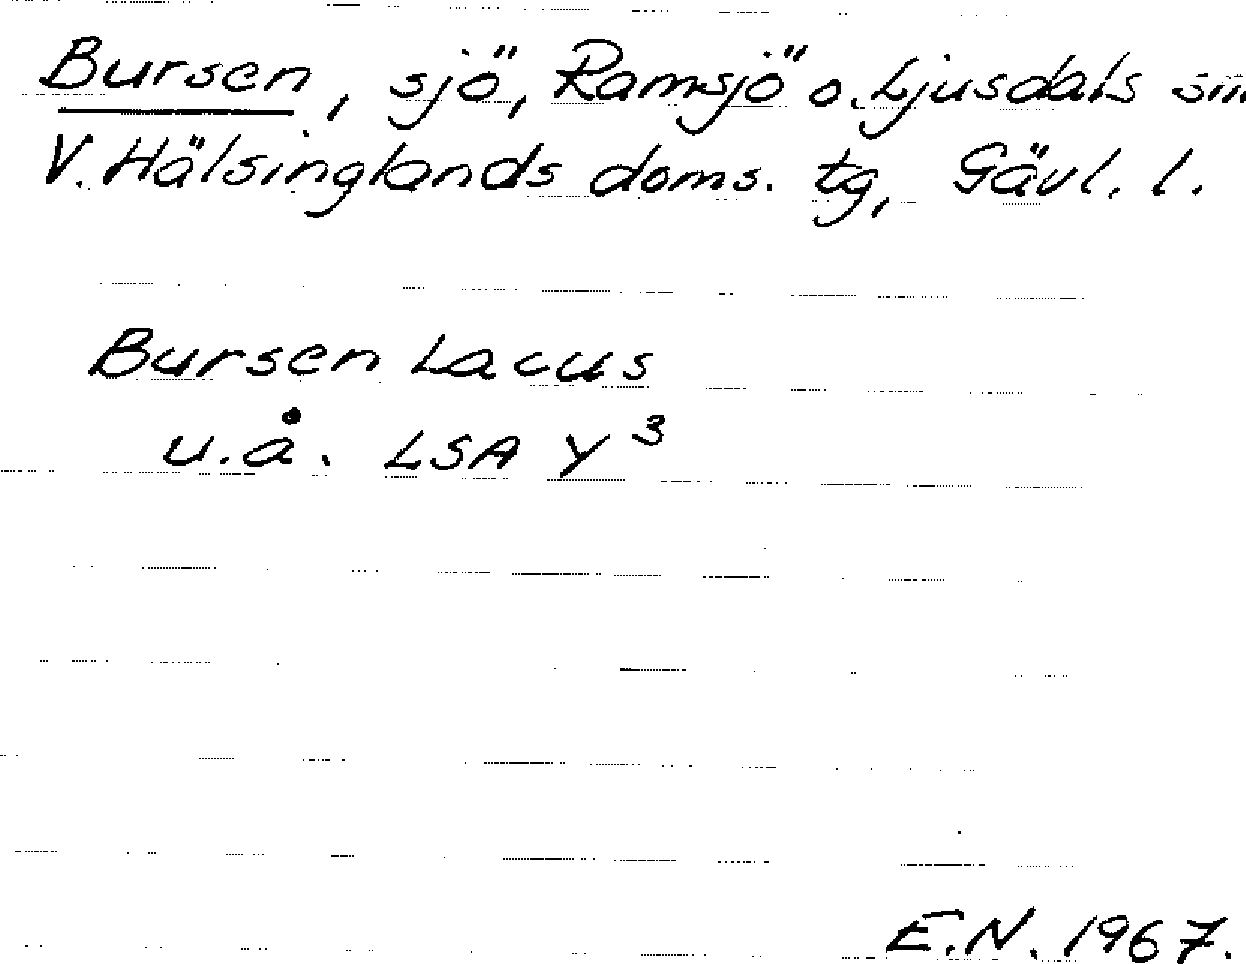 Bursen, sjö, Ramsjö o. Ljusdals
V. Hälsinglands doms. tg, Gävl. l.
Bursen Lacus
u.å. LSA Y³
E.N. 1967.